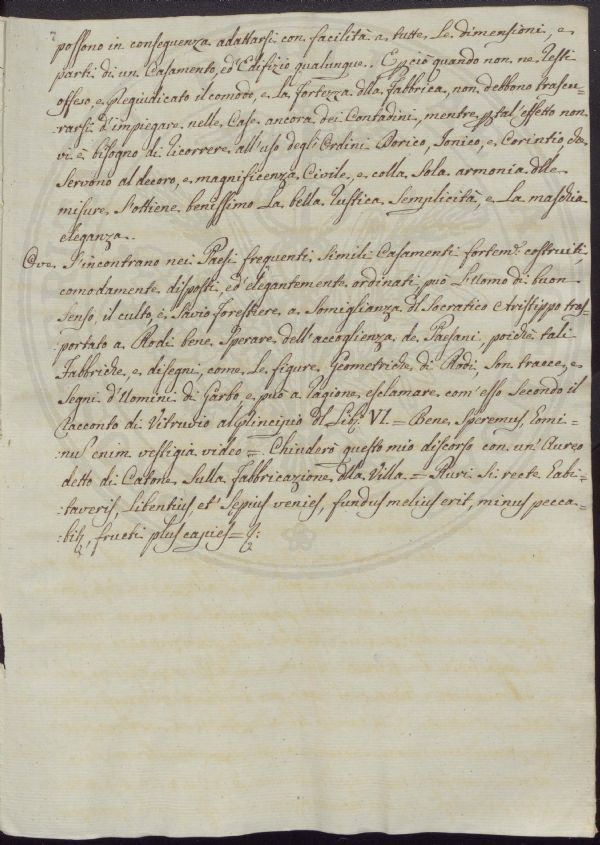 7
possono in conseguenza adattarsi con facilità a tutte le dimensioni, e
parti di un Casamento, ed' Edifizio qualunque. E ciò quando non ne resti
offeso, e pregiudicato il comodo, e la fortezza dlla fabbrica, non debbono trascu-
rarsi d'impiegare nelle Case ancora dei Contadini, mentre p tal' effetto non
vi è bisogno di ricorrere all'uso degli Ordini Dorico, Jonico, e Corintio, che
servono al decoro, e magnificenza Civile, e colla sola armonia dlle
misure s'ottiene benissimo la bella rustica semplicità, e la maschia
eleganza.
Ove s'incontrano nei Paesi frequenti simili Casamenti fortem.e costruiti
comodamente disposti, ed' elegantemente ordinati, può l'Uomo di buon
senso, il culto, e savio forestiere a somiglianza dl Socratico Aristippo tras-
portato a Rodi bene sperare dell'accoglienza de Paesani, poichè tali
Fabbriche, e disegni, come le figure Geometriche di Rodi, son traccie, e
segni d'Uomini di Garbo, e può a ragione esclamare com' esso secondo il
Racconto di Vitruvio al principio dl Lib. VI. = Bene Speremus, Homi-
nus enim vestigia video =. Chinderò questo mio discorso con un' Aureo
detto di Catone sulla Fabbricazione dlla Villa = Ruri si recte habi-
:taveris, libentius, et' sepius venies, fundus melius erit, minus pecca-
:bis, fructi plus capies =